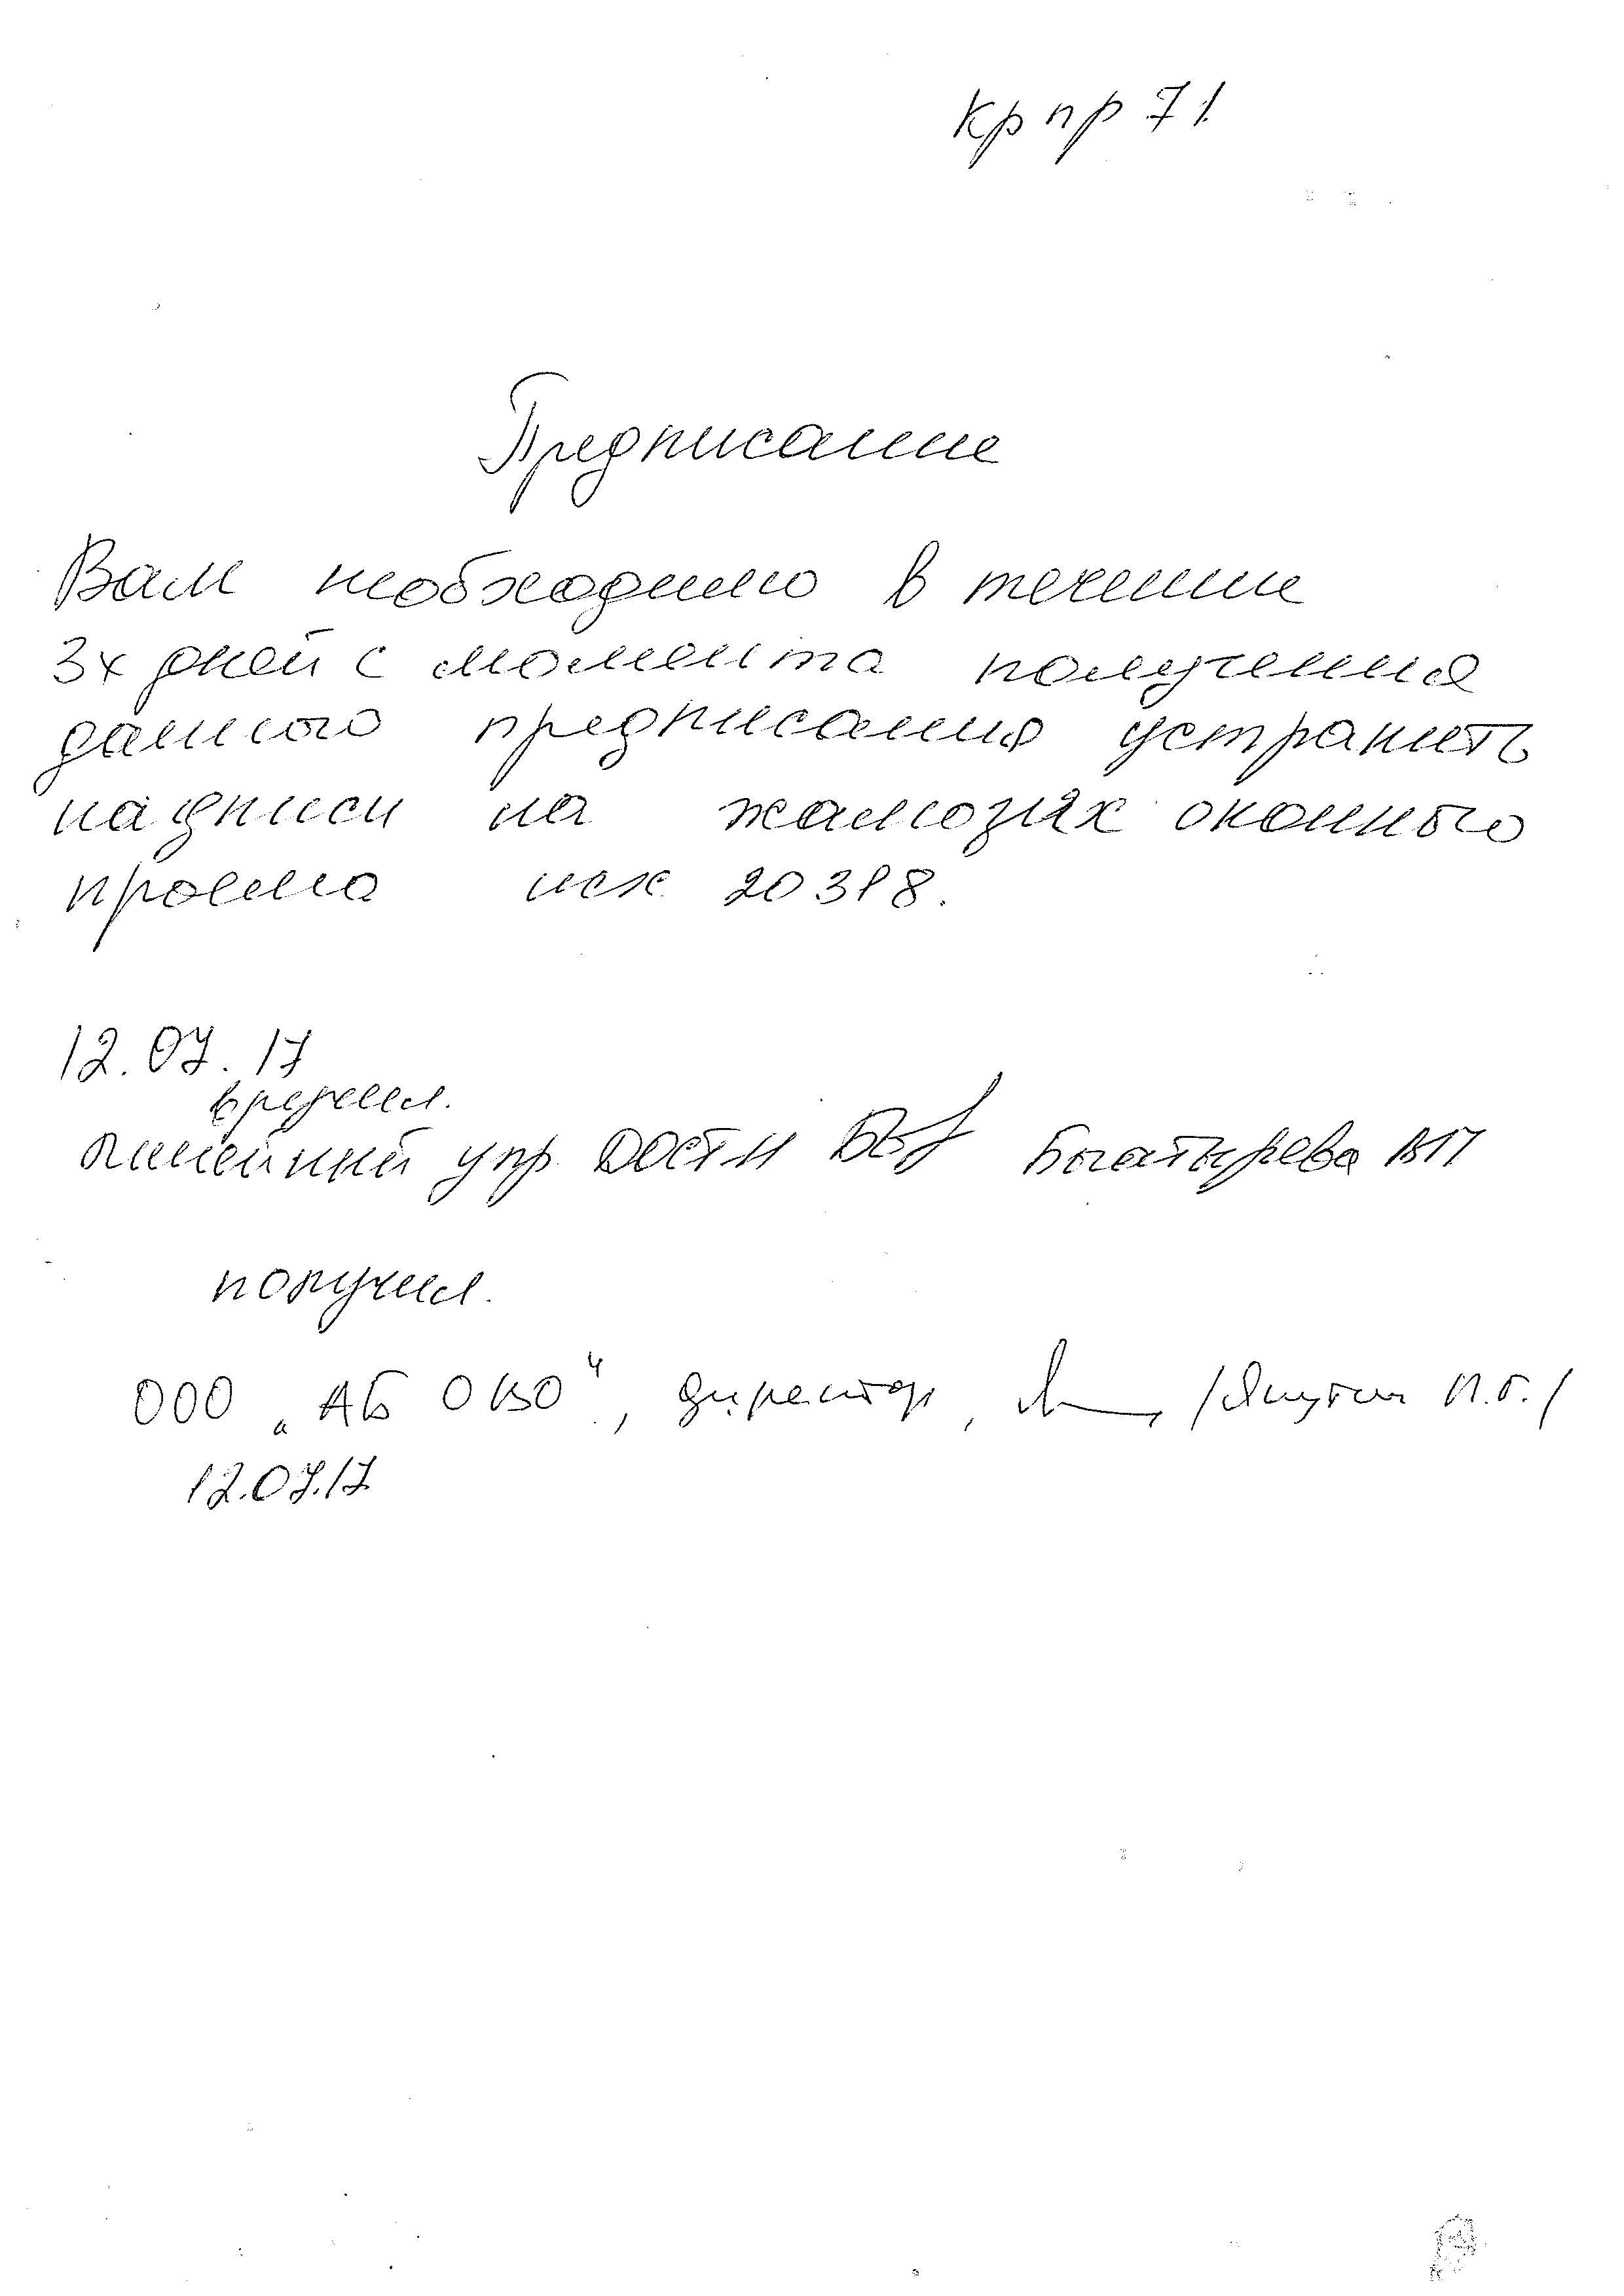 Кр пр 71
Предписание
Вам необходимо в течение
3х дней с момента получения
данного предписания устранить
надписи на жалюзях оконного
проема исх. 20398.
12.07.17
вручил.
линейный упр. Богатырева ВП
получил.
ООО „АБ ОКО“, директор, И.Б./
12.07.17